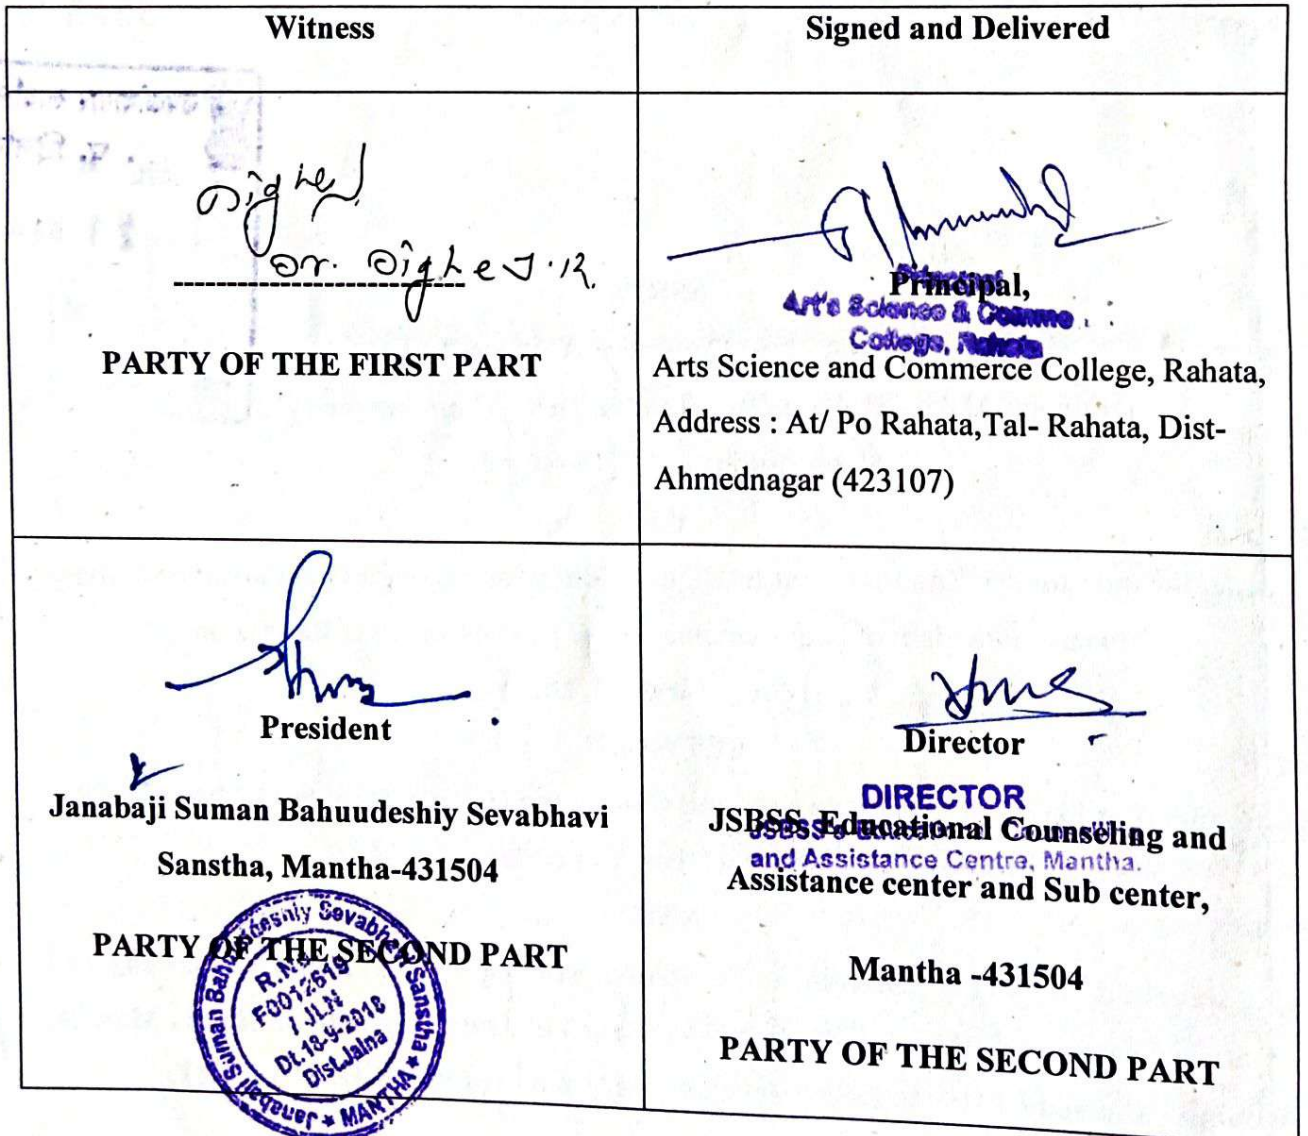 Witness
Signed and Delivered
Dighe
Dr. Dighe J.R.
PARTY OF THE FIRST PART
Principal,
Principal
Art's Science & Comme
College, Rahata
Arts Science and Commerce College, Rahata,
Address : At/ Po Rahata,Tal- Rahata, Dist-
Ahmednagar (423107)
President
Janabaji Suman Bahuudeshiy Sevabhavi
Sanstha, Mantha-431504
PARTY OF THE SECOND PART
Janabaji Suman Bahuudeshiy Sevabhavi Sanstha ★ MANTHA ★
R.No.
F0012619
/ JLN
Dt.18-9-2018
Dist.Jalna
Director
DIRECTOR
JSBSS, Educational Counseling and
JSBSS's Educational Counselling
and Assistance Centre, Mantha.
Assistance center and Sub center,
Mantha -431504
PARTY OF THE SECOND PART